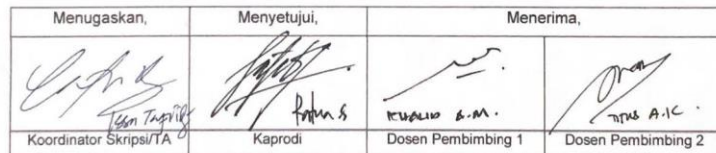 Menugaskan, Menyetujui, Menerima,
KHALID A.M. TITUS A.K.
Koordinator Skripsi/TA Kaprodi Dosen Pembimbing 1 Dosen Pembimbing 2